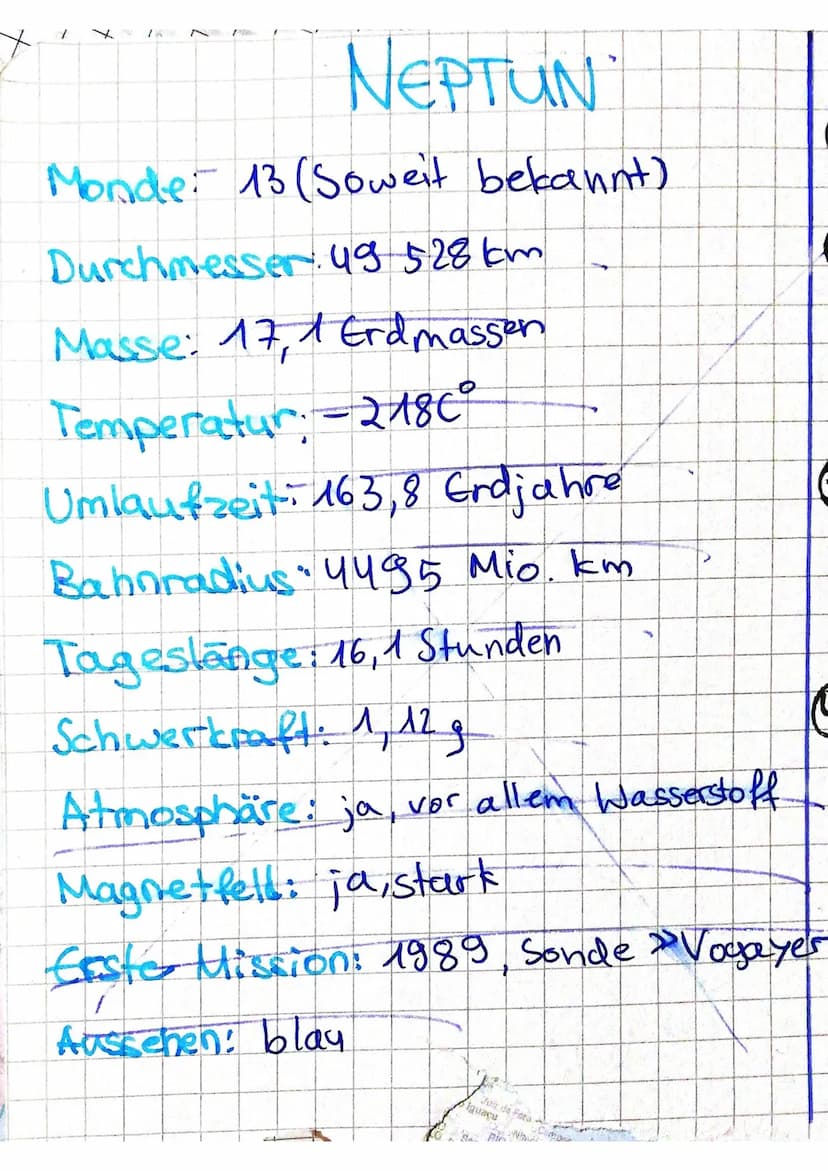 NEPTUN
Monde: 13 (Soweit bekannt)
Durchmesser: 49 528 km
Masse: 17,1 Erdmassen
Temperatur: -218C°
Umlaufzeit: 163,8 Erdjahre
Bahnradius: 4495 Mio. km
Tageslänge: 16,1 Stunden
Schwerkraft: 1,12 g
Atmosphäre: ja, vor allem Wasserstoff
Magnetfeld: ja, stark
Erste Mission: 1989, Sonde »Vogayer
Aussehen: blau
Iguaçu